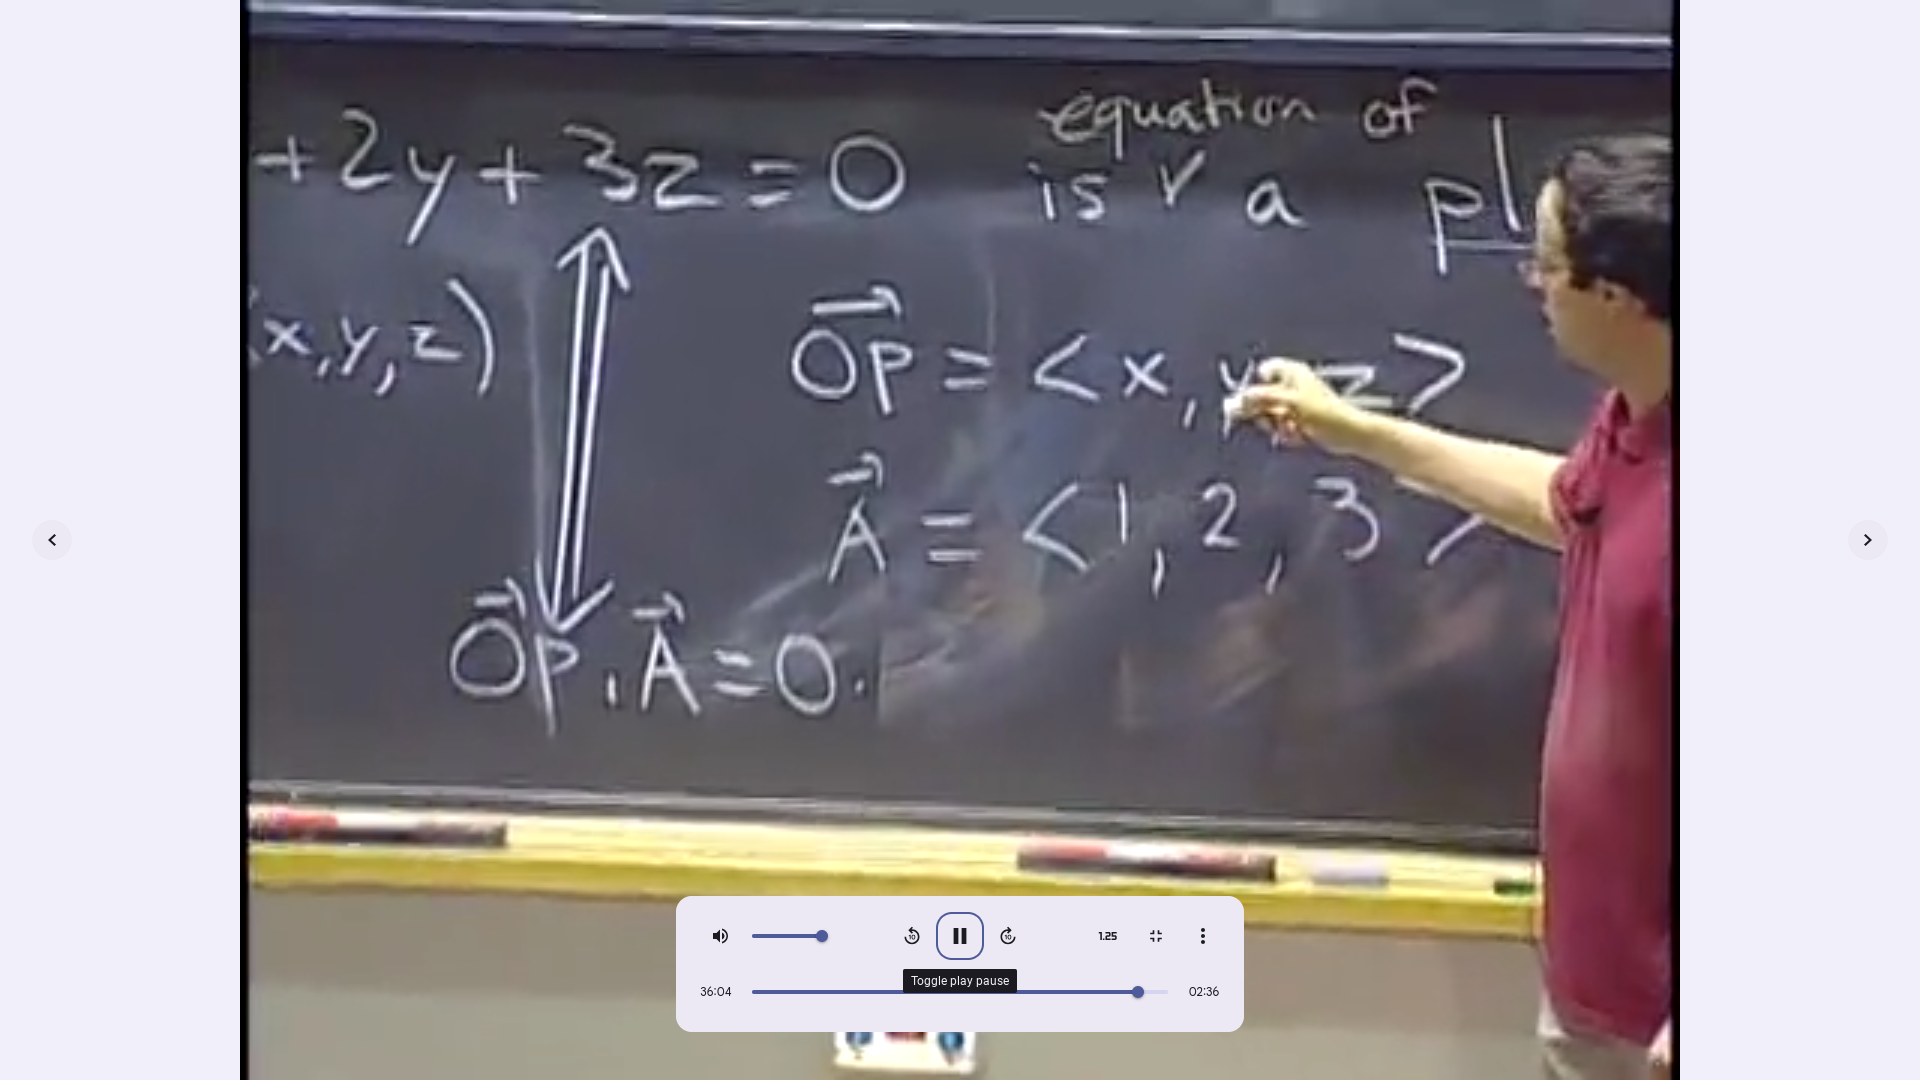 equation of
+2y+3z=0 is a pl
x,y,z)
OP = <x, y, z>
A = <1, 2, 3>
OP·A=0.
1.25
Toggle play pause
36:04 02:36